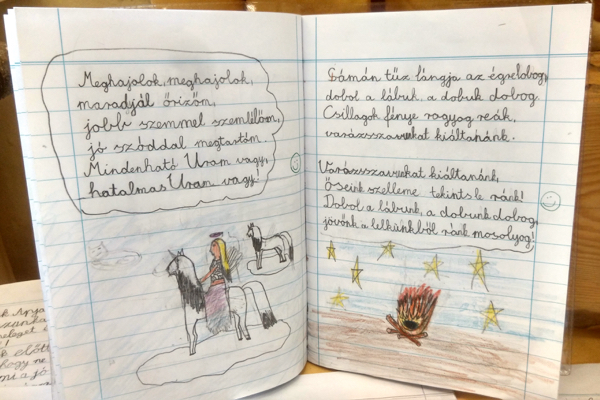 Meghajolok, meghajolok,
maradjál őrizőm,
jobb szemmel szemlélőm,
jó szóddal megtartóm.
Mindenható Uram vagy,
hatalmas Uram vagy!
Sámán tűz lángja az égre lobog,
dobol a lábuk, a dobuk dobog.
Csillagok fénye ragyog reák,
varázsszavukat kiáltanánk.
Varázsszavunkat kiáltanánk,
Őseink szelleme tekints le ránk!
Dobol a lábunk, a dobunk dobog,
jövőnk a lelkünkből ránk mosolyog!